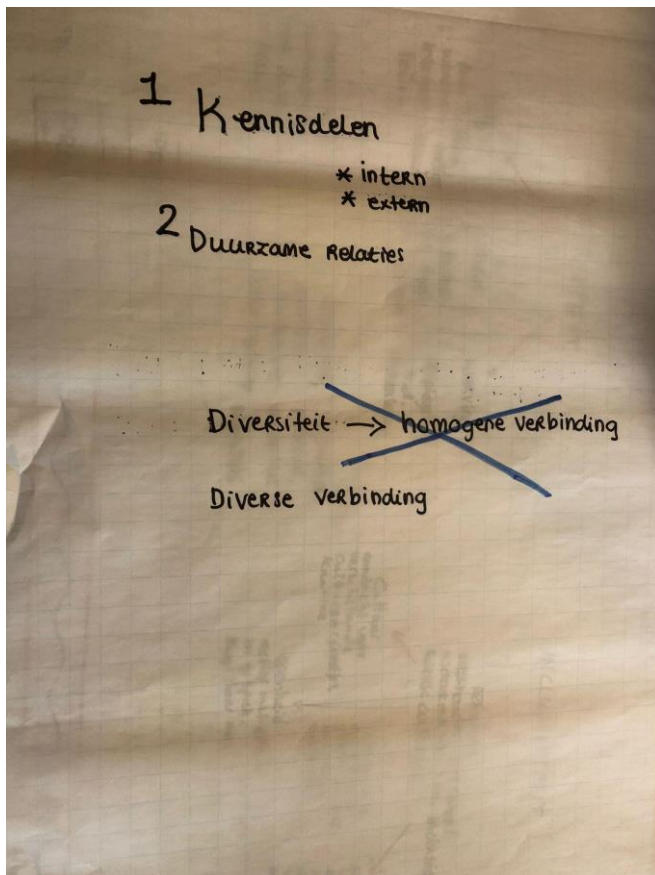 1 Kennisdelen
* intern
* extern
2 Duurzame Relaties
Diversiteit → homogene verbinding
Diverse verbinding